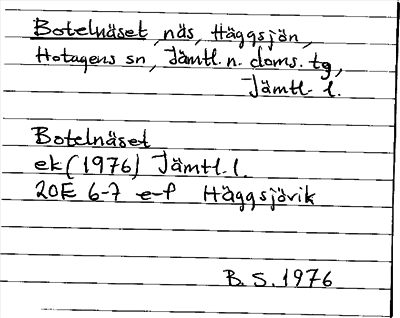 Botelnäset, näs, Häggsjön,
Hotagens sn, Jämtl. n. doms. tg,
Jämtl. l.
Botelnäset
ek (1976) Jämtl. l.
20E 6-7 e-f Häggsjövik
B. S. 1976